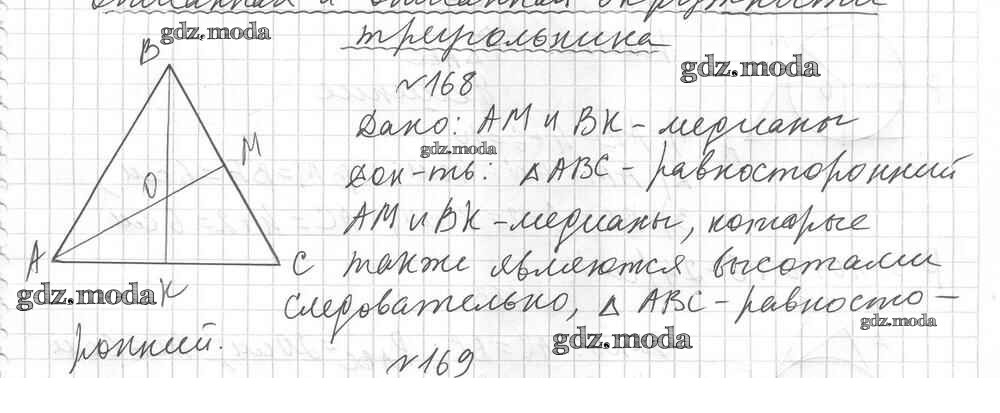 вписанной и описанной окружности
треугольника
gdz.moda
gdz.moda
№168
B
Дано: AM и BK – медианы
gdz.moda
M
Док-ть: △ABC – равносторонний
O
AM и BK – медианы, которые
A
C также являются высотами
gdz.moda
K
следовательно, △ ABC – равносто-
gdz.moda
ронний.
gdz.moda
№169